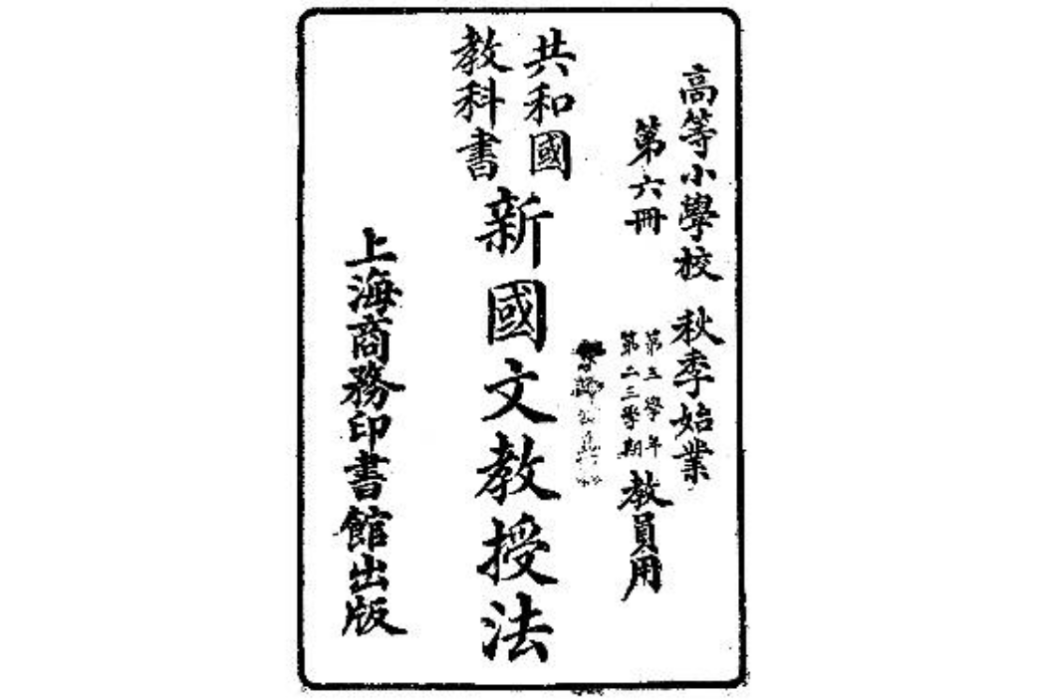 高等小學校 秋季始業
第六冊
第三學年
第二三學期
教員用
共和國
教科書
新國文教授法
上海商務印書館出版